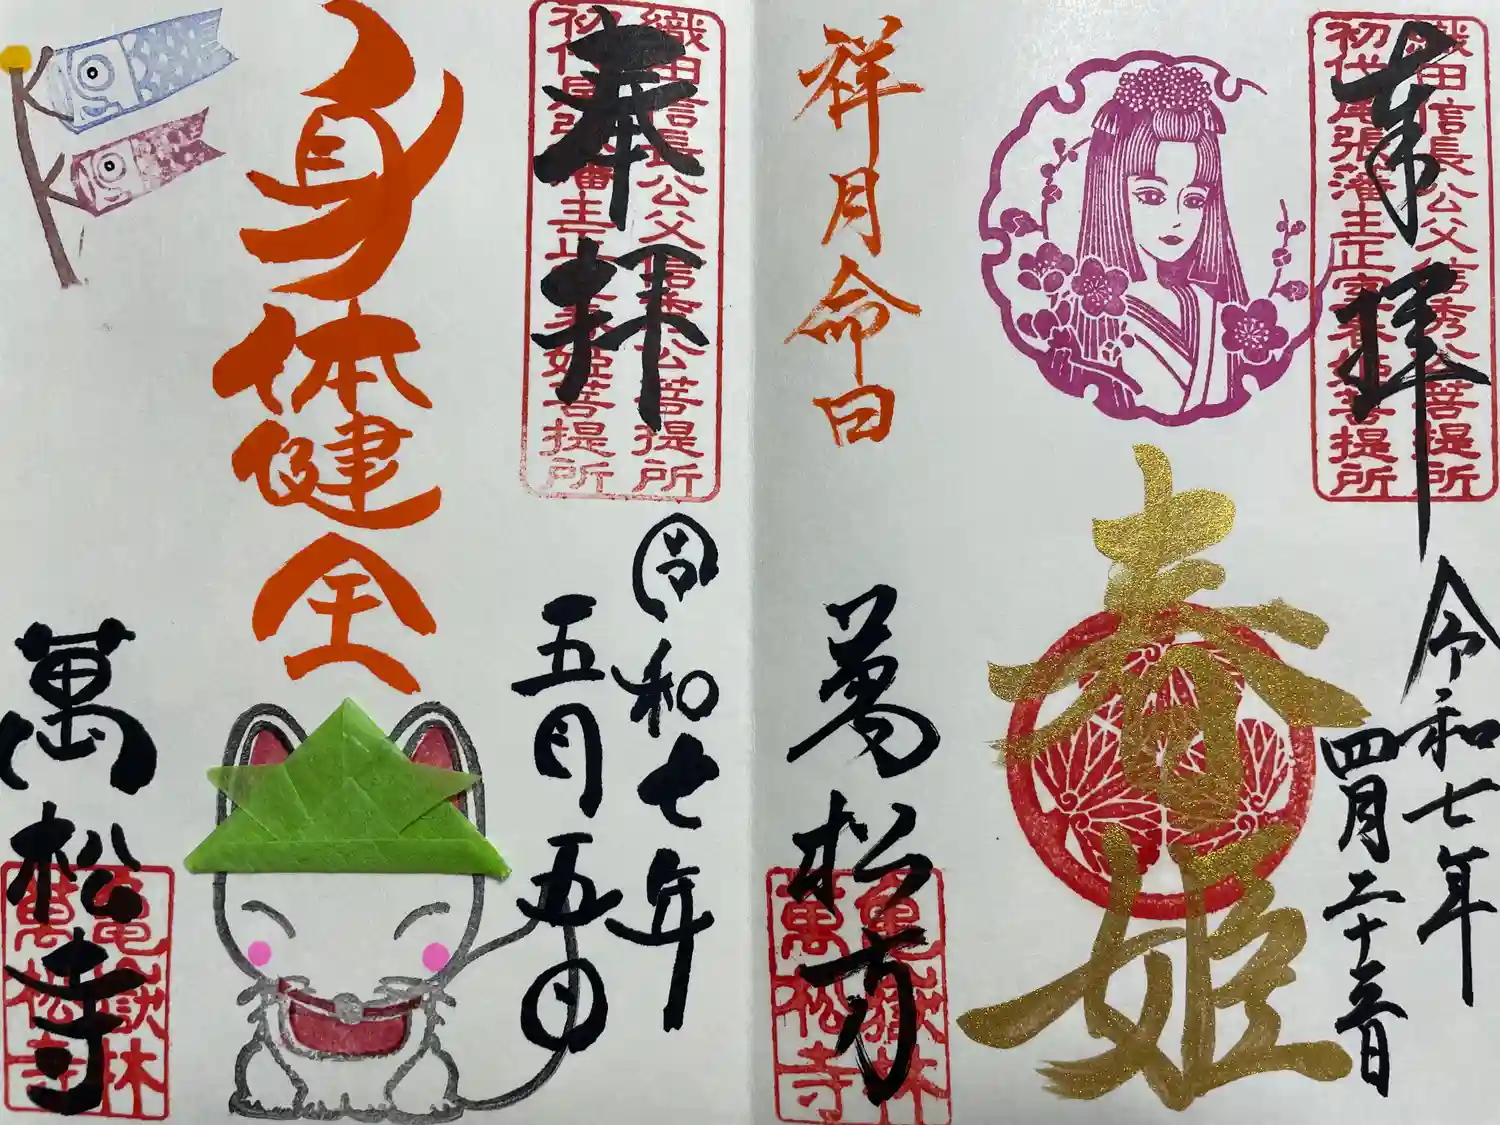 織田信長公父信秀公菩提所
初代尾張藩主正室春姫菩提所
奉拝
令和七年
四月二十三日
春姫
祥月命日
萬松寺
亀嶽林
萬松寺
織田信長公父信秀公菩提所
初代尾張藩主正室春姫菩提所
奉拝
令和七年
五月五日
身体健全
萬松寺
亀嶽林
萬松寺